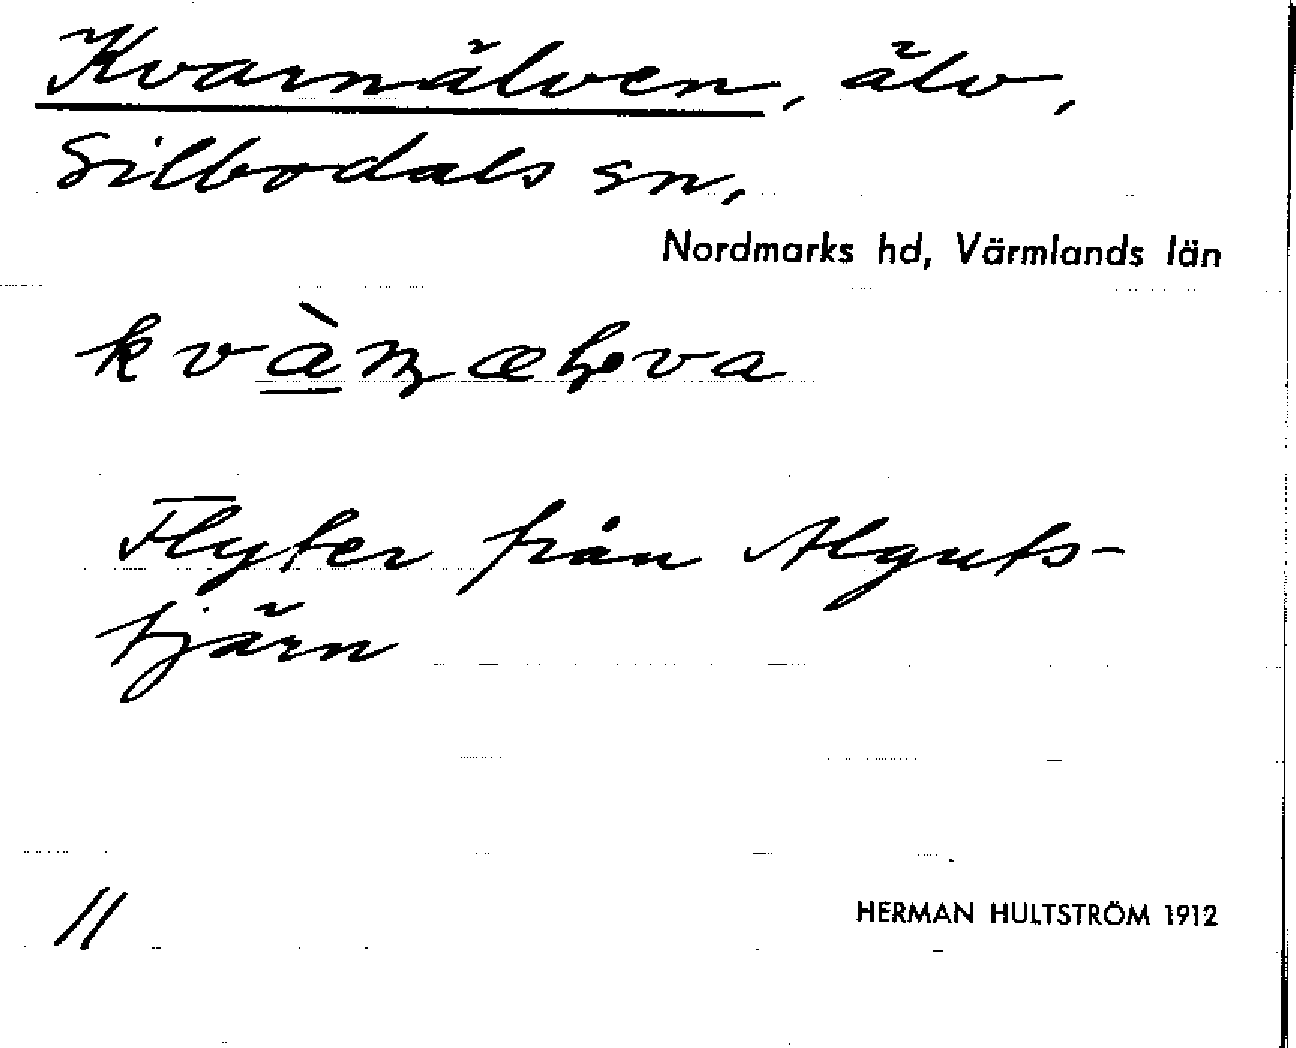 Kvarnälven, älv,
Silbodals sn,
Nordmarks hd, Värmlands län
Flyter från Alguts-
tjärn
11
HERMAN HULTSTRÖM 1912